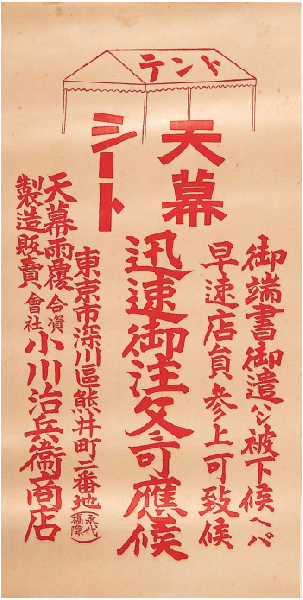 テント
天幕
シート
御端書御遣ハシ被下候ヘバ
早速店員參上可致候
迅速御注文可應候
東京市深川區熊井町二番地(永代橋際)
天幕雨覆
製造販賣
合資會社
小川治兵衞商店